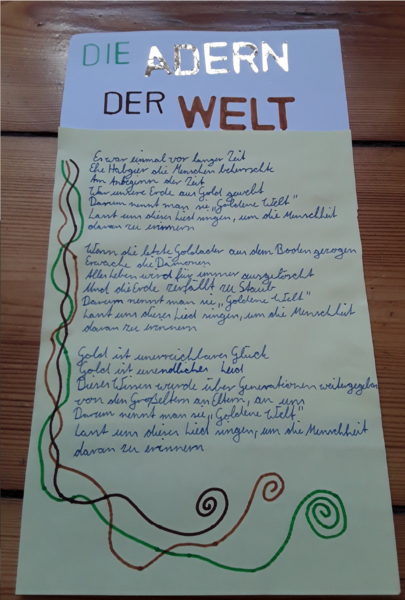 DIE ADERN
DER WELT
Es war einmal vor langer Zeit
Ehe Habgier die Menschen beherrschte
Am Anbeginn der Zeit
War unsere Erde aus Gold gewebt
Darum nennt man sie „Goldene Welt"
Lasst uns dieses Lied singen, um die Menschheit
daran zu erinnern
Wenn die letzte Goldader aus dem Boden gezogen
Erwache die Dämonen
Alles Leben wird für immer ausgelöscht
Und die Erde zerfällt zu Staub
Darum nennt man sie „Goldene Welt"
Lasst uns dieses Lied singen, um die Menschheit
daran zu erinnern
Gold ist unerreichbares Glück
Gold ist unendliches Leid
Dieses Wissen wurde über Generationen weitergegeben
von den Großeltern an Eltern, an uns
Darum nennt man sie „Goldene Welt"
Lasst uns dieses Lied singen, um die Menschheit
daran zu erinnern